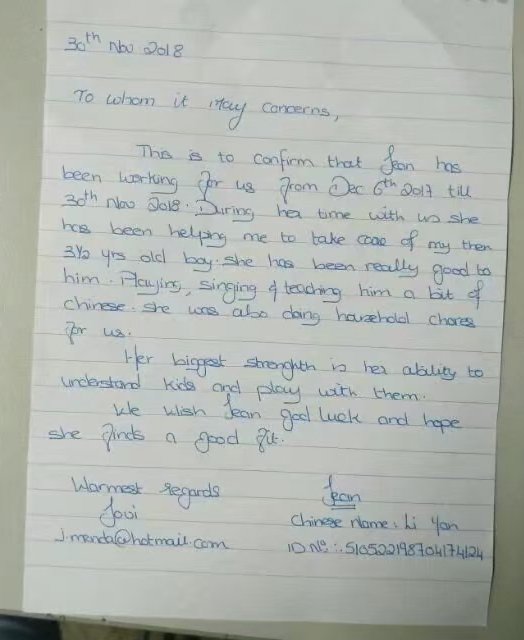 30th Nov 2018
To whom it may concerns,
This is to confirm that Jean has
been working for us from Dec 6th 2017 till
30th Nov 2018. During her time with us she
has been helping me to take care of my then
3½ yrs old boy. She has been really good to
him. Playing, singing & teaching him a bit of
chinese. She was also doing household chores
for us.
Her biggest strenghth is her ability to
understand kids and play with them.
We wish Jean god luck and hope
she finds a good fit.
Warmest regards
Jovi
j.manda@hotmail.com
Jean
Chinese Name: Li Yan
ID No:. 510522198704174124